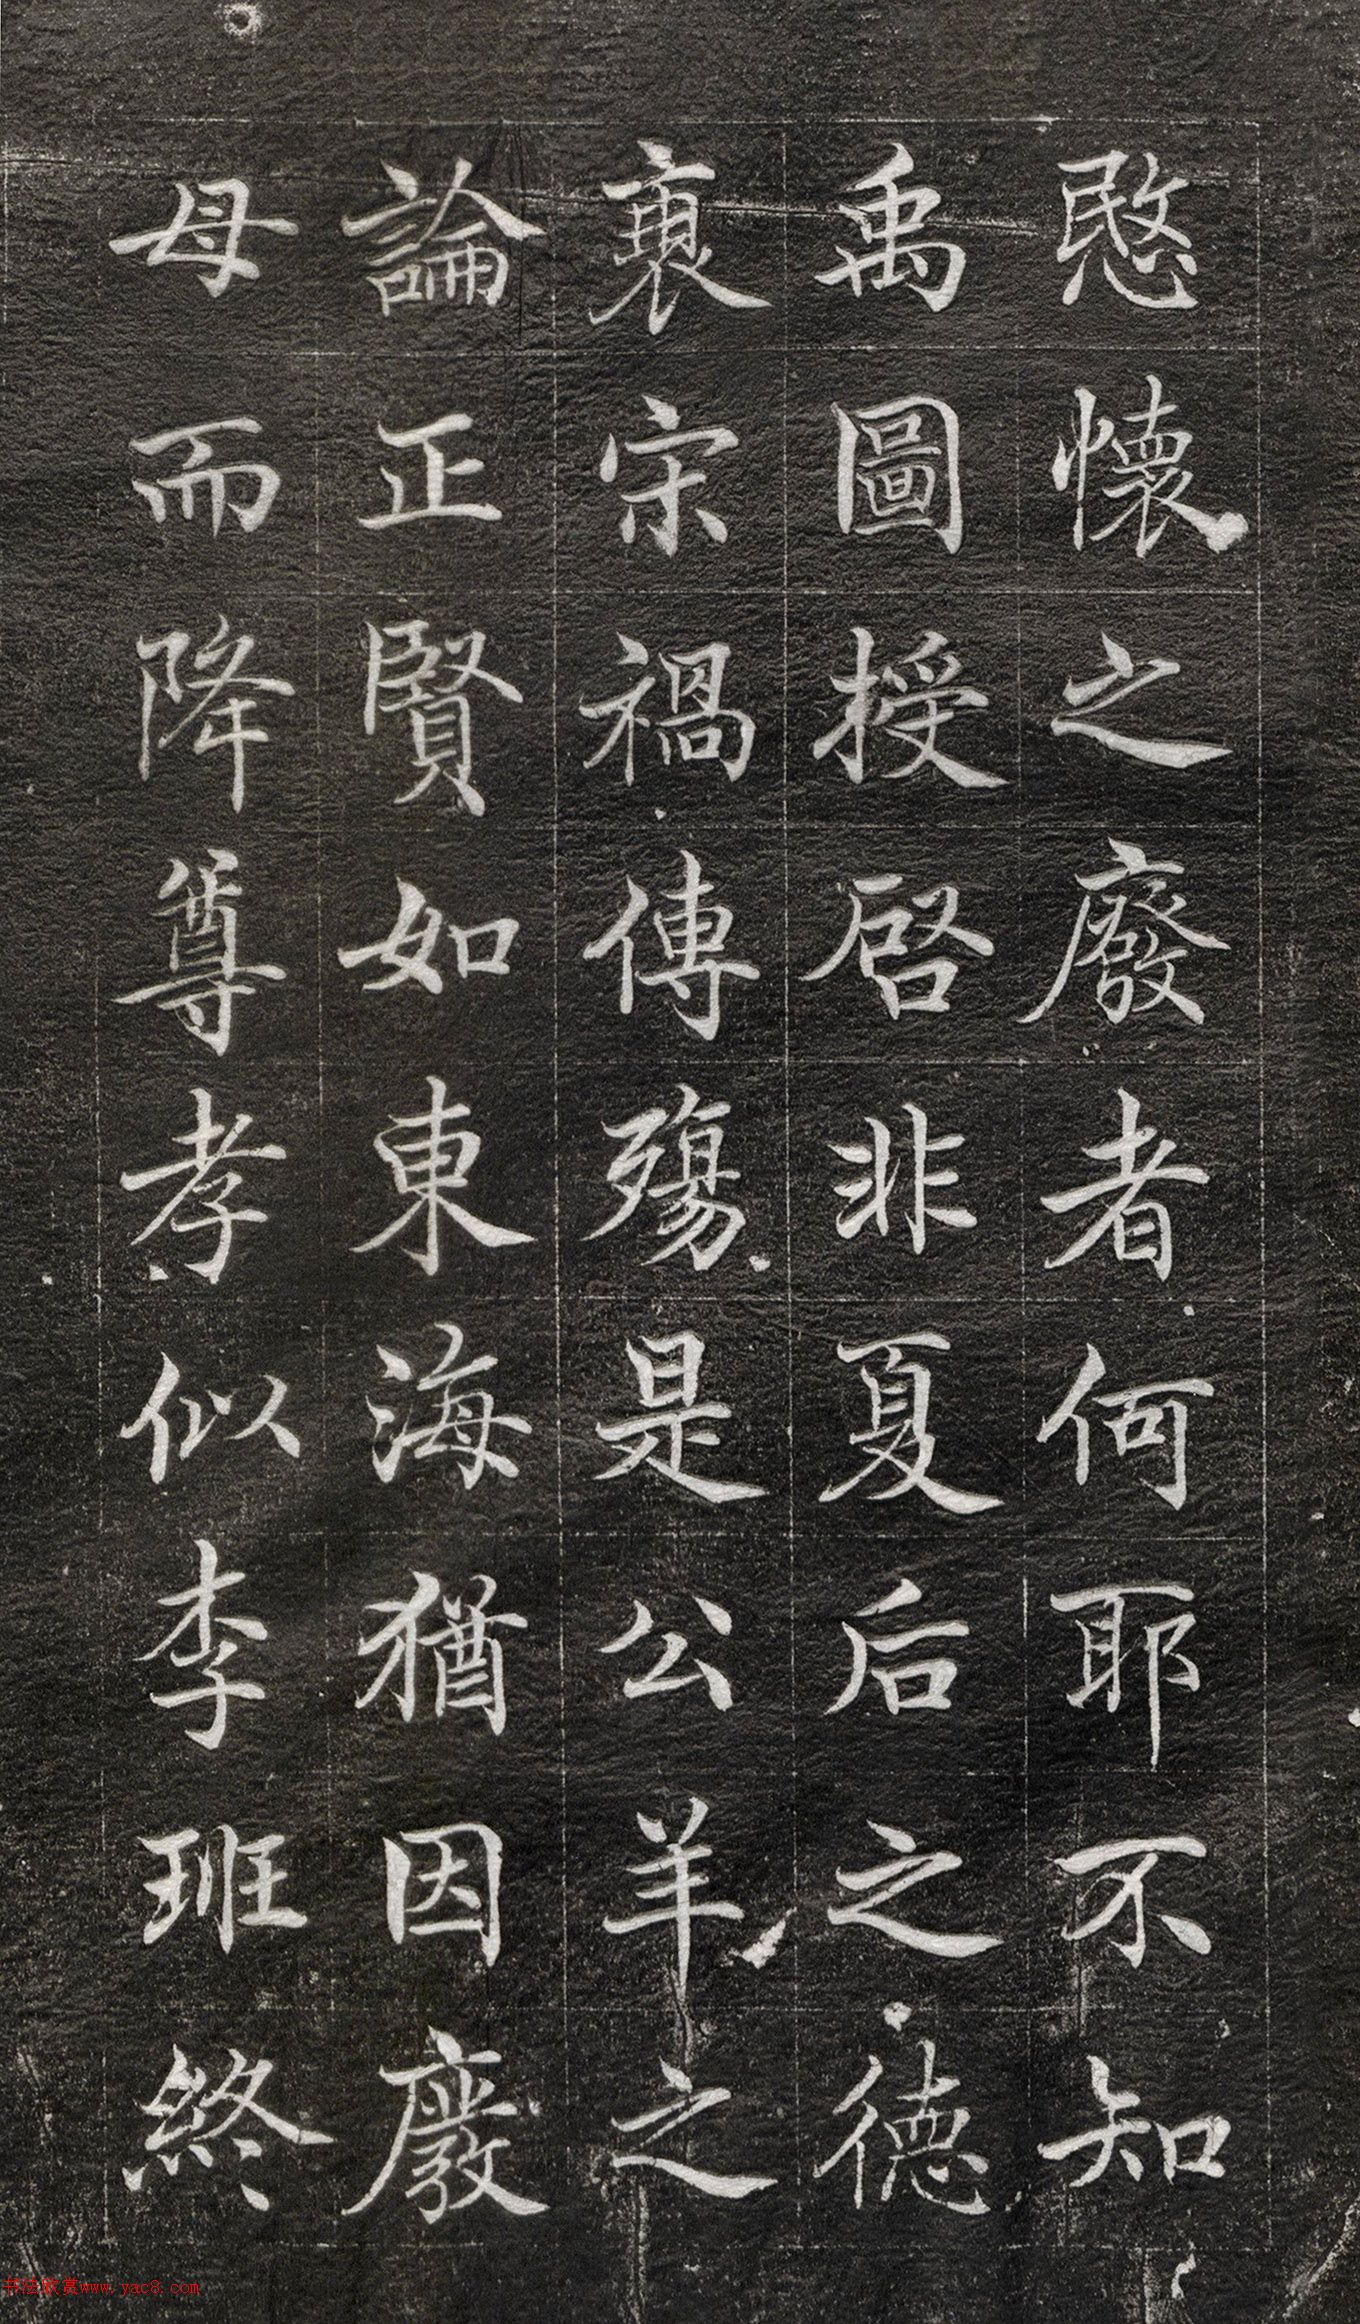 愍懷之廢者何耶不知
禹圖授啓非夏后之德
裹宋禍傳殤是公羊之
論正賢如東海猶因廢
母而降尊孝似李班終
书法欣赏www.yac8.com